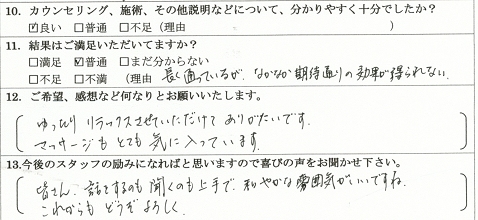 10. カウンセリング、施術、その他説明などについて、分かりやすく十分でしたか?
☑良い □普通 □不足（理由 ）
11. 結果はご満足いただいてますか?
□満足 ☑普通 □まだ分からない
□不足 □不満 （理由 長く通っているが、なかなか期待通りの効果が得られない.
12. ご希望、感想など何なりとお願いいたします。
ゆったりリラックスさせていただけてありがたいです.
マッサージもとても気に入っています.
13.今後のスタッフの励みになればと思いますので喜びの声をお聞かせ下さい。
皆さん、話をするのも聞くのも上手で、和やかな雰囲気がいいですね.
これからもどうぞよろしく.